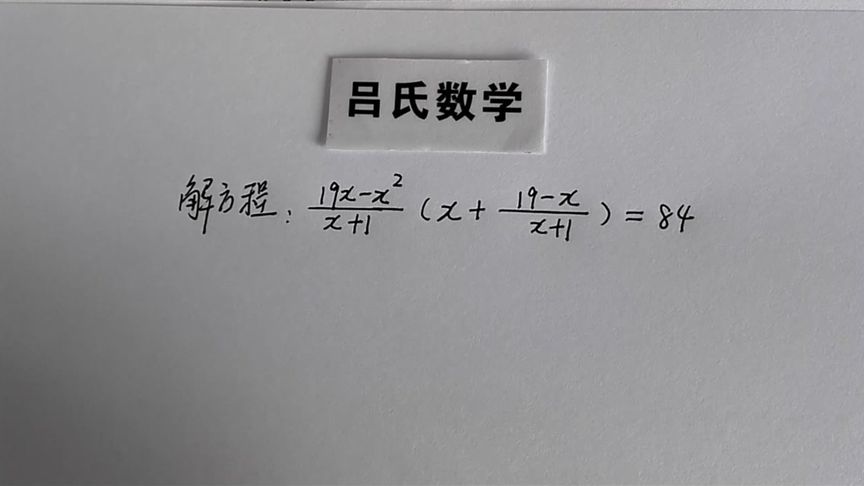 吕氏数学
解方程: \frac{19x-x^2}{x+1} (x + \frac{19-x}{x+1}) = 84